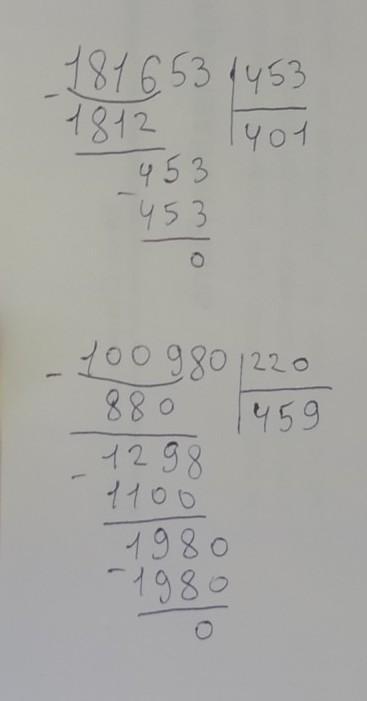 181653 453
- 1812 401
453
- 453
0
- 100980 220
880 459
1298
- 1100
1980
- 1980
0